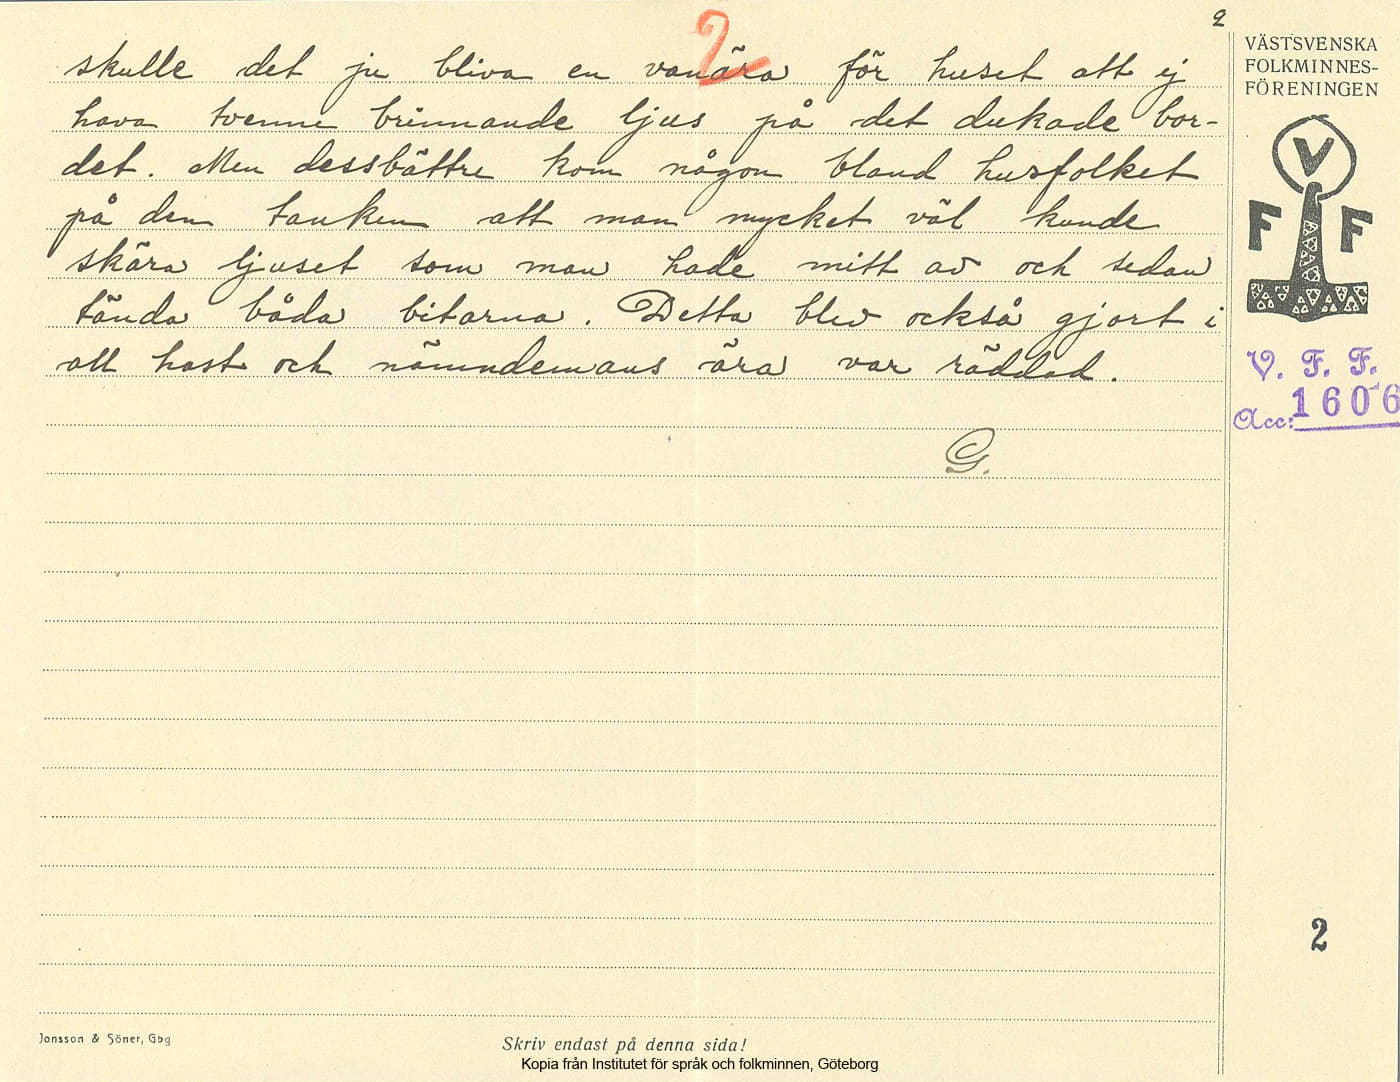 2
2
skulle det ju bliva en vanära för huset att ej
hava tvenne brinnande ljus på det dukade bor-
det. Men dessbättre kom någon bland husfolket
på den tanken att man mycket väl kunde
skära ljuset som man hade mitt av och sedan
tända båda bitarna. Detta blev också gjort i
all hast och nämndemans ära var räddad.
G.
VÄSTSVENSKA
FOLKMINNES-
FÖRENINGEN
V
F F
V. F. F.
Acc: 1606
2
Jonsson & Söner, Gbg
Skriv endast på denna sida!
Kopia från Institutet för språk och folkminnen, Göteborg